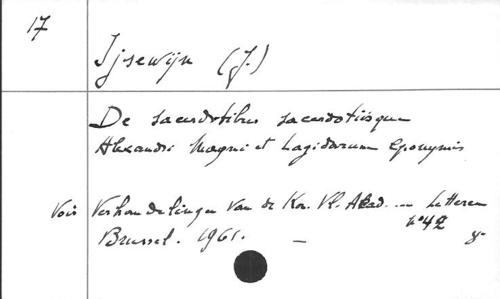 17
Ijsewijn (J.)
De sacerdotibus sacerdotiisque
Alexandri Magni et Lagidarum eponymis
Voir Verhandelingen Van de Kon. Vl. Akad. ... Letteren
n° 42
Brussel. 1961. —